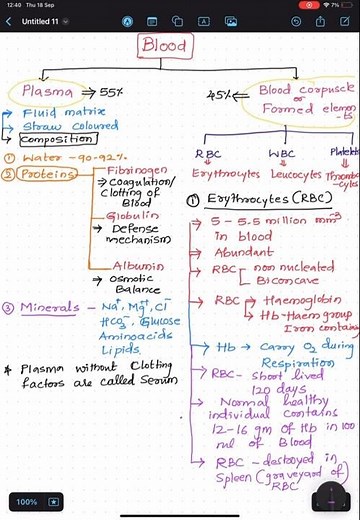 12:40 Thu 18 Sep
7%
Untitled 11
Blood
Plasma ⇒ 55%
→ Fluid matrix
→ Straw coloured
→ Composition
① Water - 90-92%
② Proteins
Fibrinogen
⇒ Coagulation/
Clotting of
Blood
Globulin
→ Defense
mechanism
Albumin
→ Osmotic
Balance
③ Minerals - Na⁺, Mg⁺, Cl⁻
HCO₃⁻, Glucose
Aminoacids
Lipids.
* Plasma without Clotting
factors are called Serum
45% ⇐ Blood corpuscle
or
Formed elemen
-ts
RBC WBC Platelets
Erythrocytes Leucocytes Thrombo
-cytes
① Erythrocytes (RBC)
→ 5 - 5.5 million mm⁻³
in blood
→ Abundant
→ RBC non nucleated
Biconcave
→ RBC → Haemoglobin
→ Hb-Haem group
Iron contain
→ Hb → Carry O₂ during
Respiration
→ RBC - Short lived
120 days
→ Normal healthy
individual contains
12-16 gm of Hb in 100
ml of Blood
→ RBC - destroyed in
Spleen (graveyard of
RBC
100%